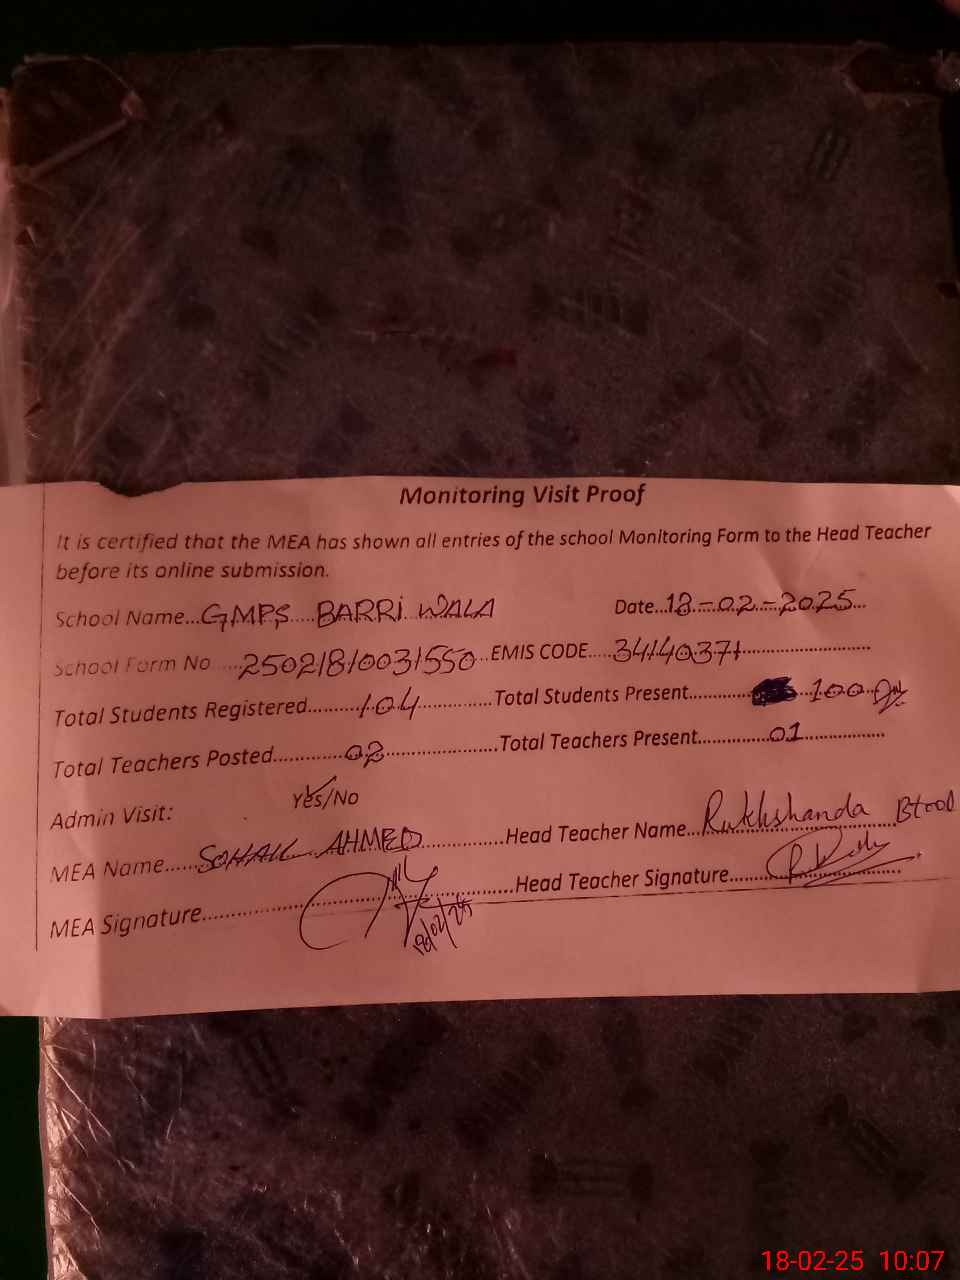 Monitoring Visit Proof
It is certified that the MEA has shown all entries of the school Monitoring Form to the Head Teacher
before its online submission.
School Name...GMPS BARRI WALA Date...18-02-2025...
School Form No ....25021810031550...EMIS CODE....34140371....................
Total Students Registered.........104...............Total Students Present............ 100
Total Teachers Posted............02.....................Total Teachers Present.............01...............
Admin Visit: Yes/No
MEA Name......SOHAIL AHMED...............Head Teacher Name...Rukhshanda Btool
MEA Signature..................................................Head Teacher Signature...........................
18/02/25
18-02-25 10:07